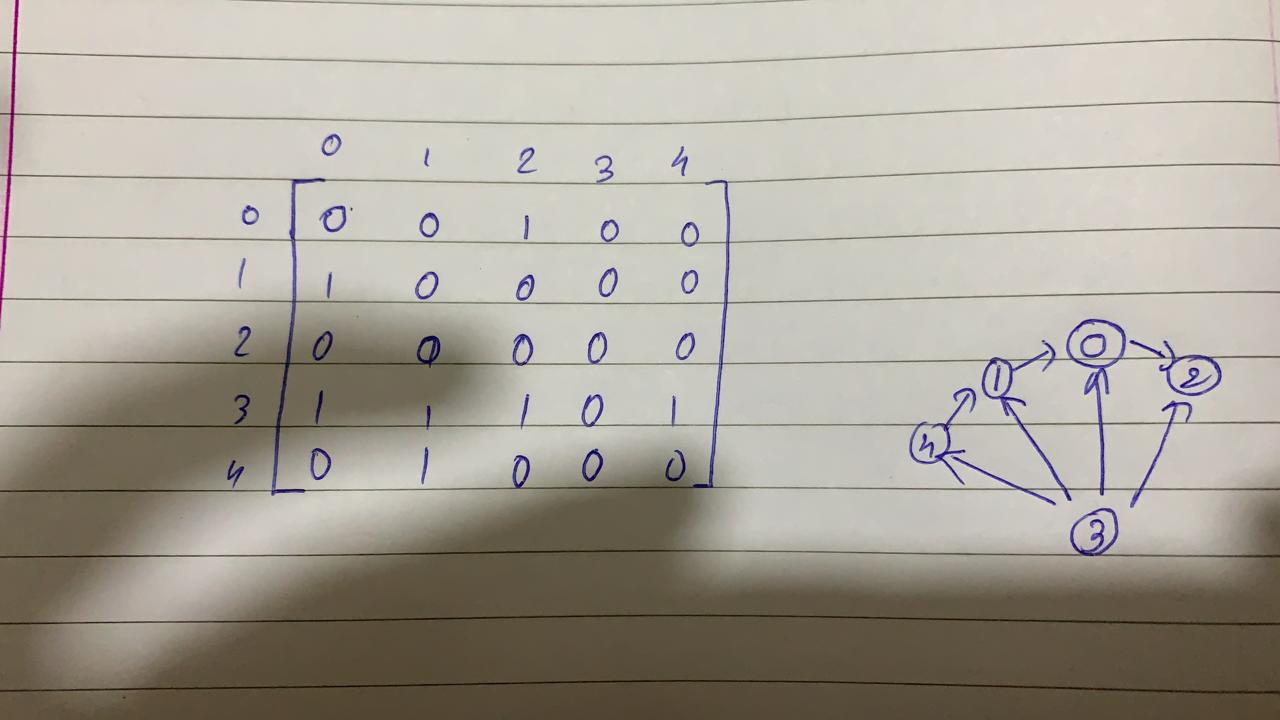 0 1 2 3 4
0 0 0 1 0 0
1 1 0 0 0 0
2 0 0 0 0 0
3 1 1 1 0 1
4 0 1 0 0 0
0
1 2
4
3